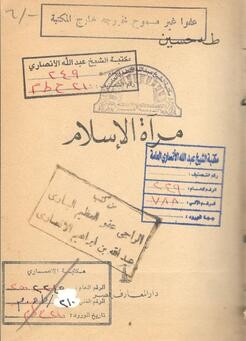 عفوا غير مسموح بخروجه خارج المكتبة
طه حسين
مكتبة الشيخ عبد الله الانصاري
٢٤٩
مرآة الإسلام
مكتبة الشيخ عبد الله الأنصاري العامة
رقم التصنيف :
الرقم العام : ٢٢٩
٧٨٨
من كتب
الراجي عفو العظيم الباري
عبد الله بن ابراهيم الانصاري
مكتبة الانصاري
الرقم العام
دار المعارف بمصر
تاريخ الورود :